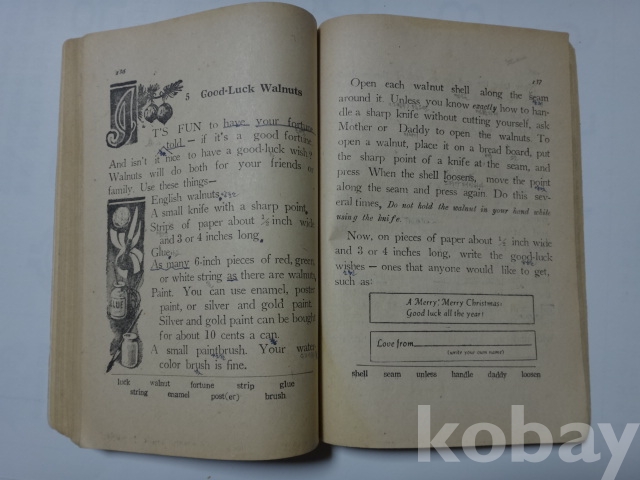 5 Good-Luck Walnuts
IT'S FUN to have your fortune
told — if it's a good fortune.
And isn't it nice to have a good-luck wish?
Walnuts will do both for your friends or
family. Use these things—
English walnuts
A small knife with a sharp point
Strips of paper about ½ inch wide
and 3 or 4 inches long
Glue
As many 6-inch pieces of red, green,
or white string as there are walnuts
Paint. You can use enamel, poster
paint, or silver and gold paint.
Silver and gold paint can be bought
for about 10 cents a can.
A small paintbrush. Your water
color brush is fine.
luck walnut fortune strip glue
string enamel post(er) brush
Open each walnut shell along the seam
around it. Unless you know exactly how to han-
dle a sharp knife without cutting yourself, ask
Mother or Daddy to open the walnuts. To
open a walnut, place it on a bread board, put
the sharp point of a knife at the seam, and
press When the shell loosens, move the point
along the seam and press again. Do this sev-
eral times, Do not hold the walnut in your hand while
using the knife.
Now, on pieces of paper about ½ inch wide
and 3 or 4 inches long, write the good-luck
wishes — ones that anyone would like to get,
such as:
A Merry, Merry Christmas
Good luck all the year!
Love from
(write your own name)
shell seam unless handle daddy loosen
kobay